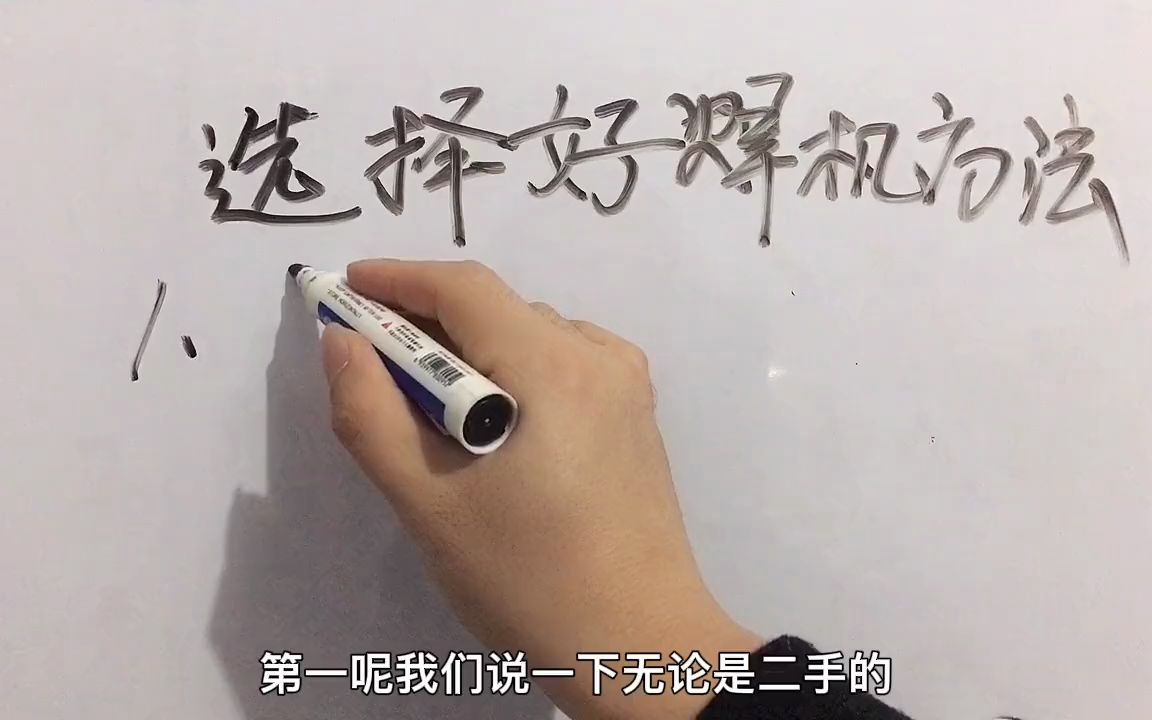 选择好焊机方法
1、
第一呢我们说一下无论是二手的